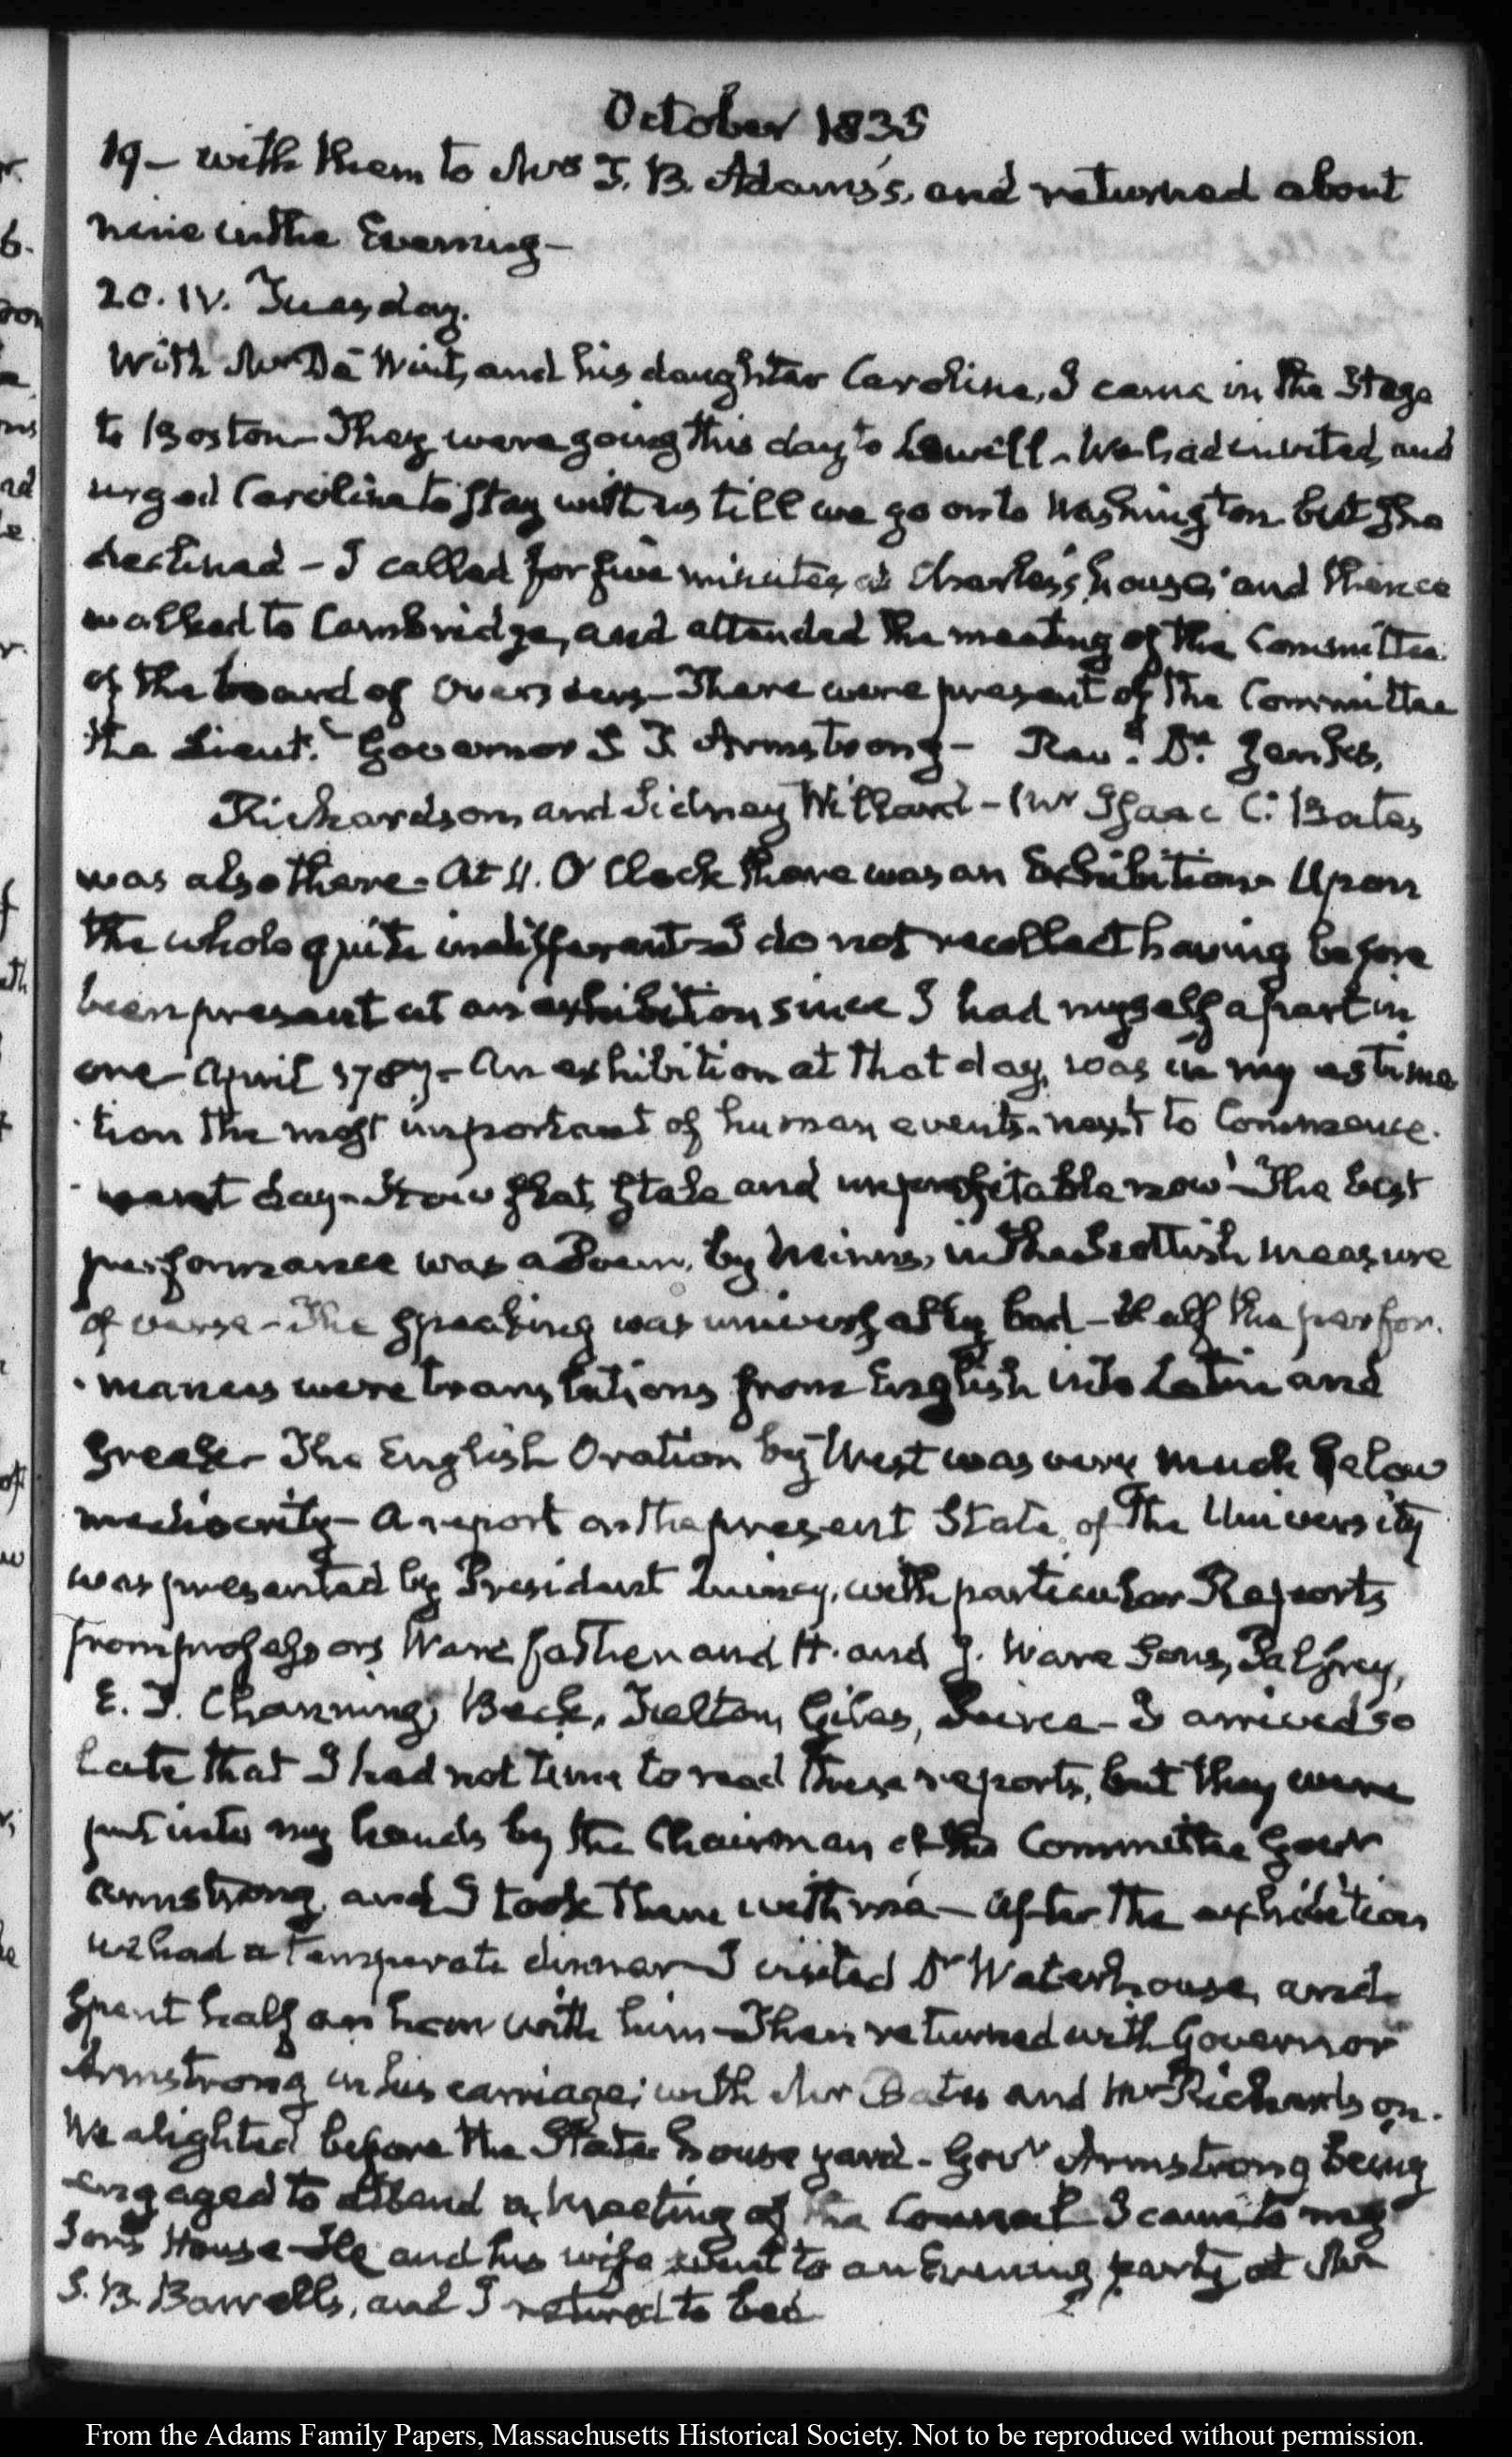 October 1835
19 – with them to Mrs T. B. Adams's, and returned about
nine in the Evening –
20. IV. Tuesday.
With Mr De Wint, and his daughter Caroline, I came in the Stage
to Boston – They were going this day to Lowell – We had invited, and
urged Caroline to stay with us till we go on to Washington but she
declined – I called for five minutes at Charles's house, and thence
walked to Cambridge, and attended the meeting of the Committee
of the board of Overseers – There were present of the Committee
the Lieut. Governor S T Armstrong – Revd. Dr. Jenks,
Richardson, and Sidney Willard – Mr Isaac C. Bates
was also there. At 4. O'Clock there was an Exhibition – Upon
the whole quite indifferent – I do not recollect having before
been present at an exhibition since I had myself a part in
one – April 1787 – An exhibition at that day, was in my estima
tion the most important of human events, next to Commence-
-ment day – How flat, stale and unprofitable now – The best
performance was a Poem, by Minns, in the Scottish measure
of verse – The speaking was universally bad – Half the perfor-
-mances were translations from English into Latin and
Greek – The English Oration by West was very much below
mediocrity – A report on the present State of the University
was presented by President Quincy, with particular Reports
from professors Ware father and H. and J. Ware Sons, Palfrey,
E. T. Channing, Beck, Felton, Giles, Peirce – I arrived so
late that I had not time to read these reports, but they were
put into my hands by the Chairman of the Committee Govr
Armstrong, and I took them with me – After the exhibition
we had a temperate dinner – I visited Dr Waterhouse, and
spent half an hour with him – Then returned with Governor
Armstrong in his carriage; with Mr Bates and Mr Richardson.
We alighted before the State house yard – Govr Armstrong being
engaged to attend a Meeting of the Council I came to my
Son's House – He and his wife went to an Evening party at Mr
S. B. Barrell's, and I retired to bed
From the Adams Family Papers, Massachusetts Historical Society. Not to be reproduced without permission.